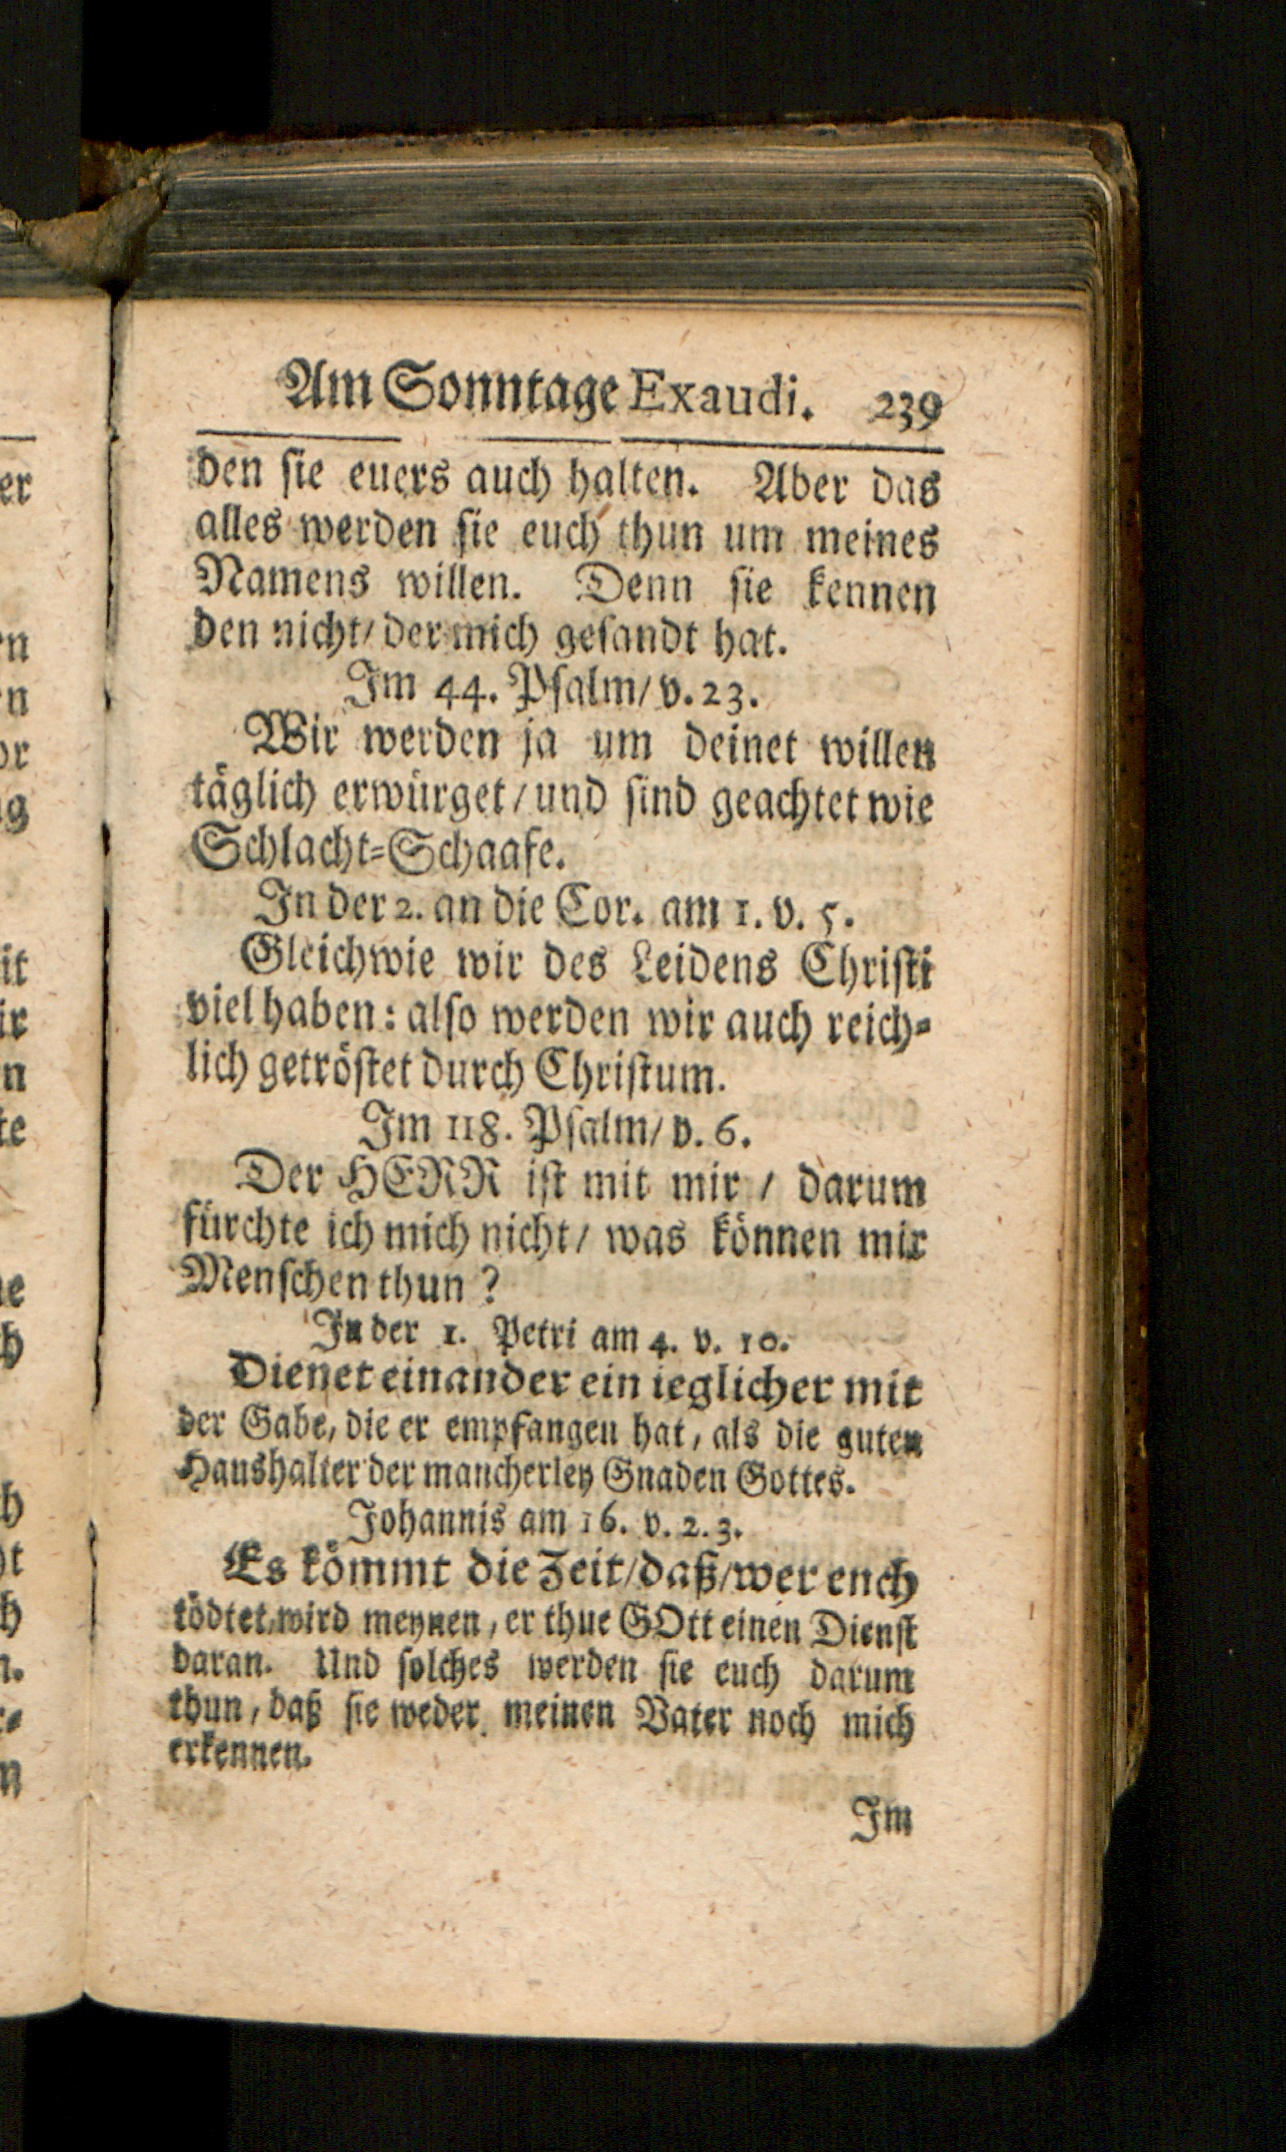 Am Sonntage Exaudi. 239
den sie euers auch halten. Aber das
alles werden sie euch thun um meines
Namens willen. Denn sie kennen
den nicht/ der mich gesandt hat.
Im 44. Psalm/ v. 23.
Wir werden ja um deinet willen
täglich erwürget/ und sind geachtet wie
Schlacht-Schaafe.
In der 2. an die Cor. am 1. v. 5.
Gleichwie wir des Leidens Christi
viel haben: also werden wir auch reich-
lich getröstet durch Christum.
Im 118. Psalm/ v. 6.
Der HERR ist mit mir / darum
fürchte ich mich nicht/ was können mir
Menschen thun?
In der 1. Petri am 4. v. 10.
Dienet einander ein ieglicher mit
der Gabe, die er empfangen hat, als die guten
Haushalter der mancherley Gnaden Gottes.
Johannis am 16. v. 2. 3.
Es kömmt die Zeit/ daß/ wer euch
tödtet, wird meynen, er thue GOtt einen Dienst
daran. Und solches werden sie euch darum
thun, daß sie weder meinen Vater noch mich
erkennen.
Im